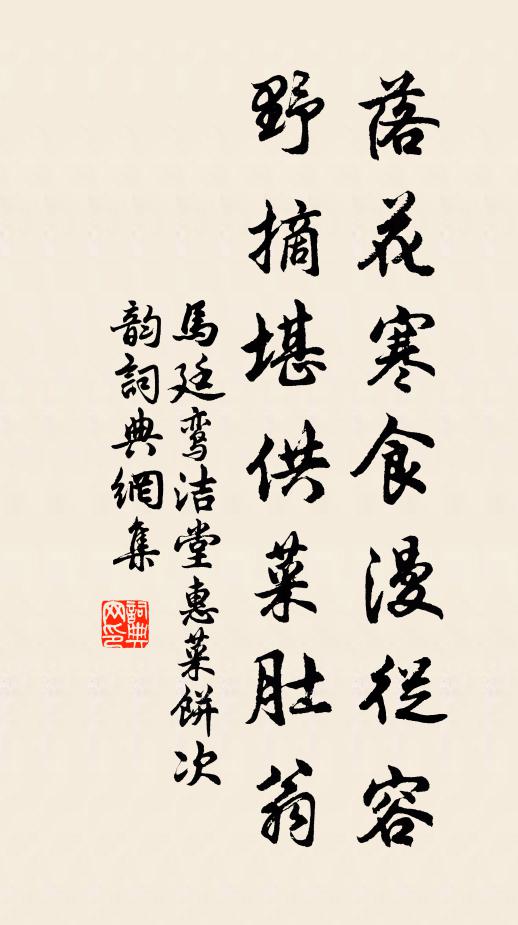 落花寒食漫從容
野摘堪供菜肚翁
馬廷鸞洁堂惠菜餅次
韵詞典網集
詞典網印